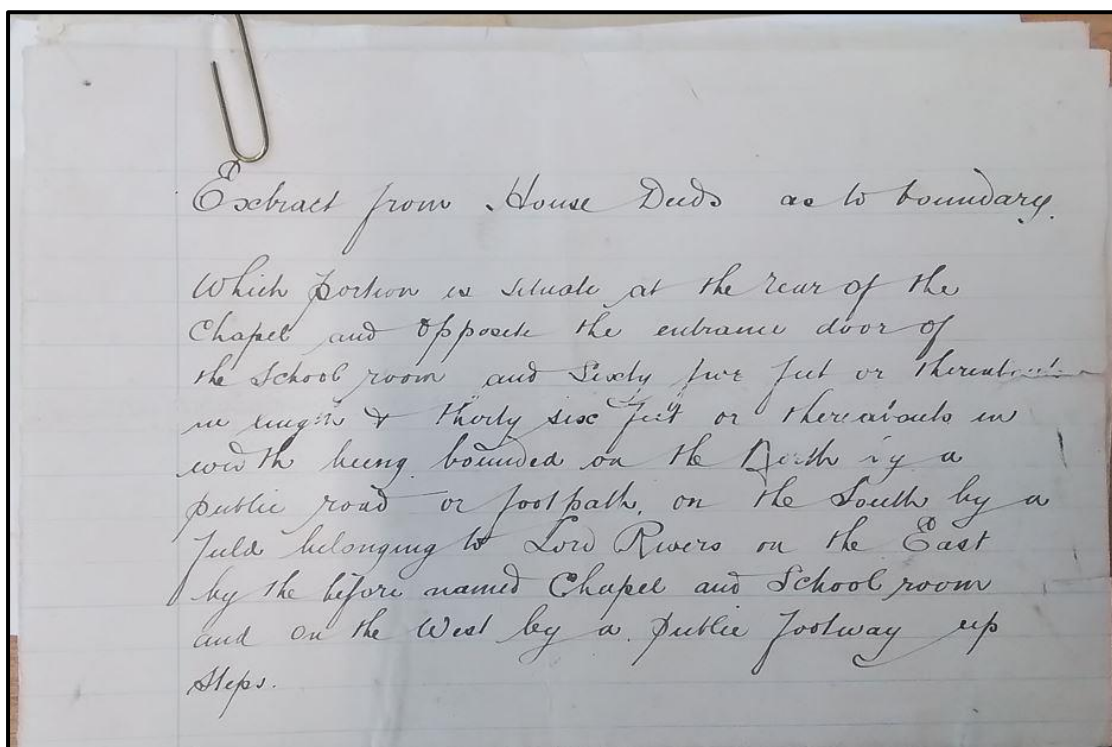 Extract from House Deeds as to boundary.
Which portion is situate at the rear of the
Chapel and opposite the entrance door of
the School room and Sixty five feet or thereabouts
in length & thirty six feet or thereabouts in
width being bounded on the North by a
public road or footpath, on the South by a
field belonging to Lord Rivers on the East
by the before named Chapel and School room
and on the West by a public footway up
steps.